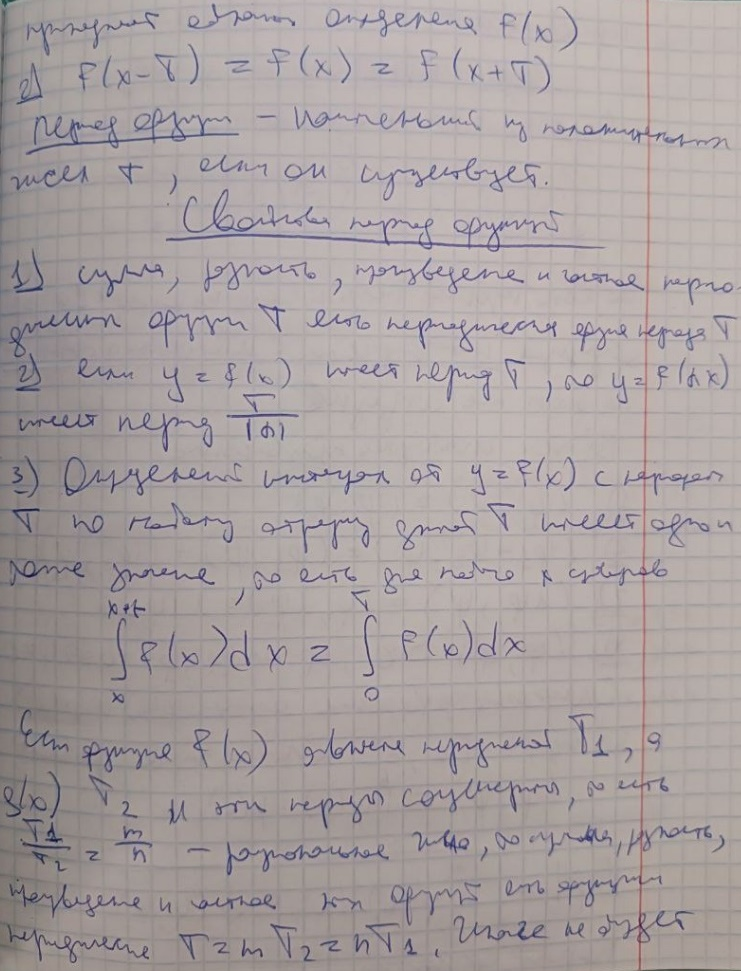 принадлежат области определения f(x)
2) f(x-T) = f(x) = f(x+T)
Период функции – наименьший из положительных
чисел T, если он существует.
Свойства период функций
1) сумма, разность, произведение и частное перио-
дических функции T есть периодическая функция периода T
2) если y = f(x) имеет период T, то y = f(αx)
имеет период T/|α|
3) Определенный интеграл от y = f(x) с периодом
T по любому отрезку длиной T имеет одно и
тоже значение, то есть для любого x справедливо
x+T T
∫ f(x)dx = ∫ f(x)dx
x 0
Если функция f(x) является периодической T1, а
g(x) T2 и эти периоды соизмеримы, то есть
T1/T2 = m/n – рациональное число, то сумма, разность,
произведение и частное этих функций есть функции
периодические T = mT2 = nT1. Иначе не будет